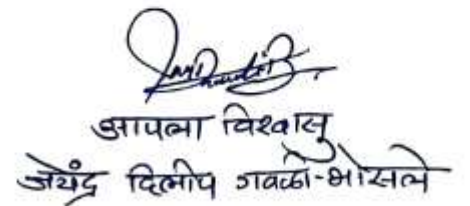 आपला विश्वासु
जयेंद्र दिलीप गवळी-भोसले